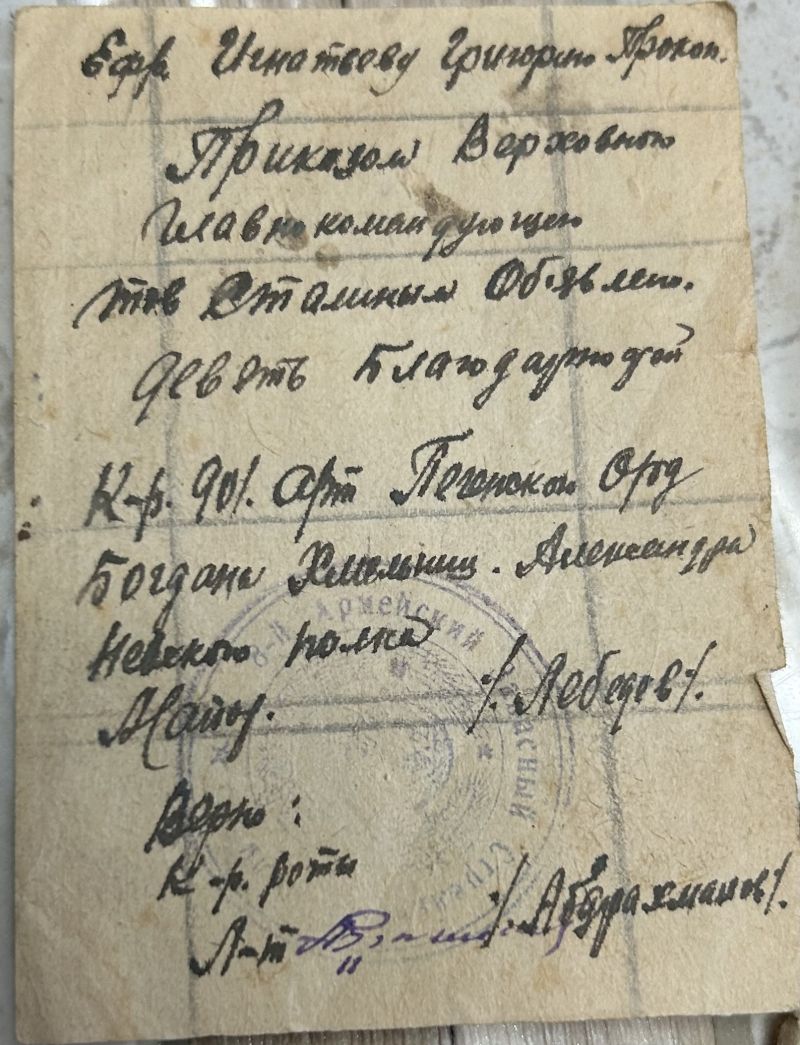 Ефр. Игнатьеву Григорию Прокоп.
Приказом Верховного
Главнокомандующего
тов Сталиным Объявлено
девять Благодарностей
К-р. 90%. арт Орд
Богдана Хмельниц. Александра
Невского полка
Майор. /. Лебедов /.
Верно:
К-р. роты
Л-т /. Абдрахманов /.
Армейский Запасный Стрелк